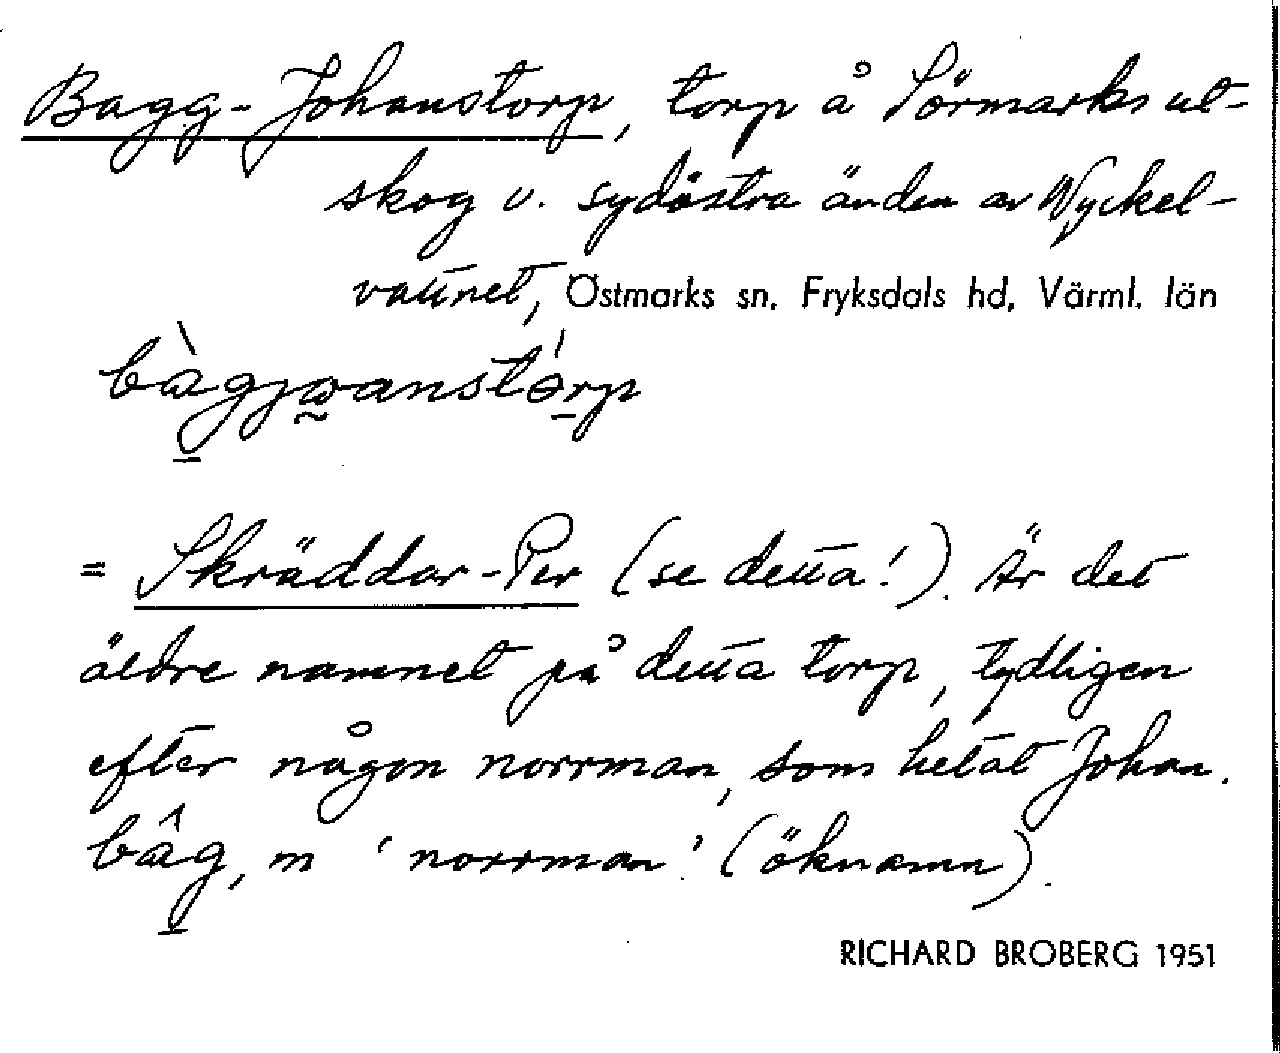 Bagg-Johanstorp, torp å Sörmarks ut-
skog v. sydöstra änden av Nyckel-
vattnet, Östmarks sn. Fryksdals hd, Värml. län
bàgjωanstórp
= Skräddar-Per (se detta!). Är det
äldre namnet på detta torp, tydligen
efter någon norrman, som hetat Johan.
bâg, m 'norrman' (öknamn).
RICHARD BROBERG 1951